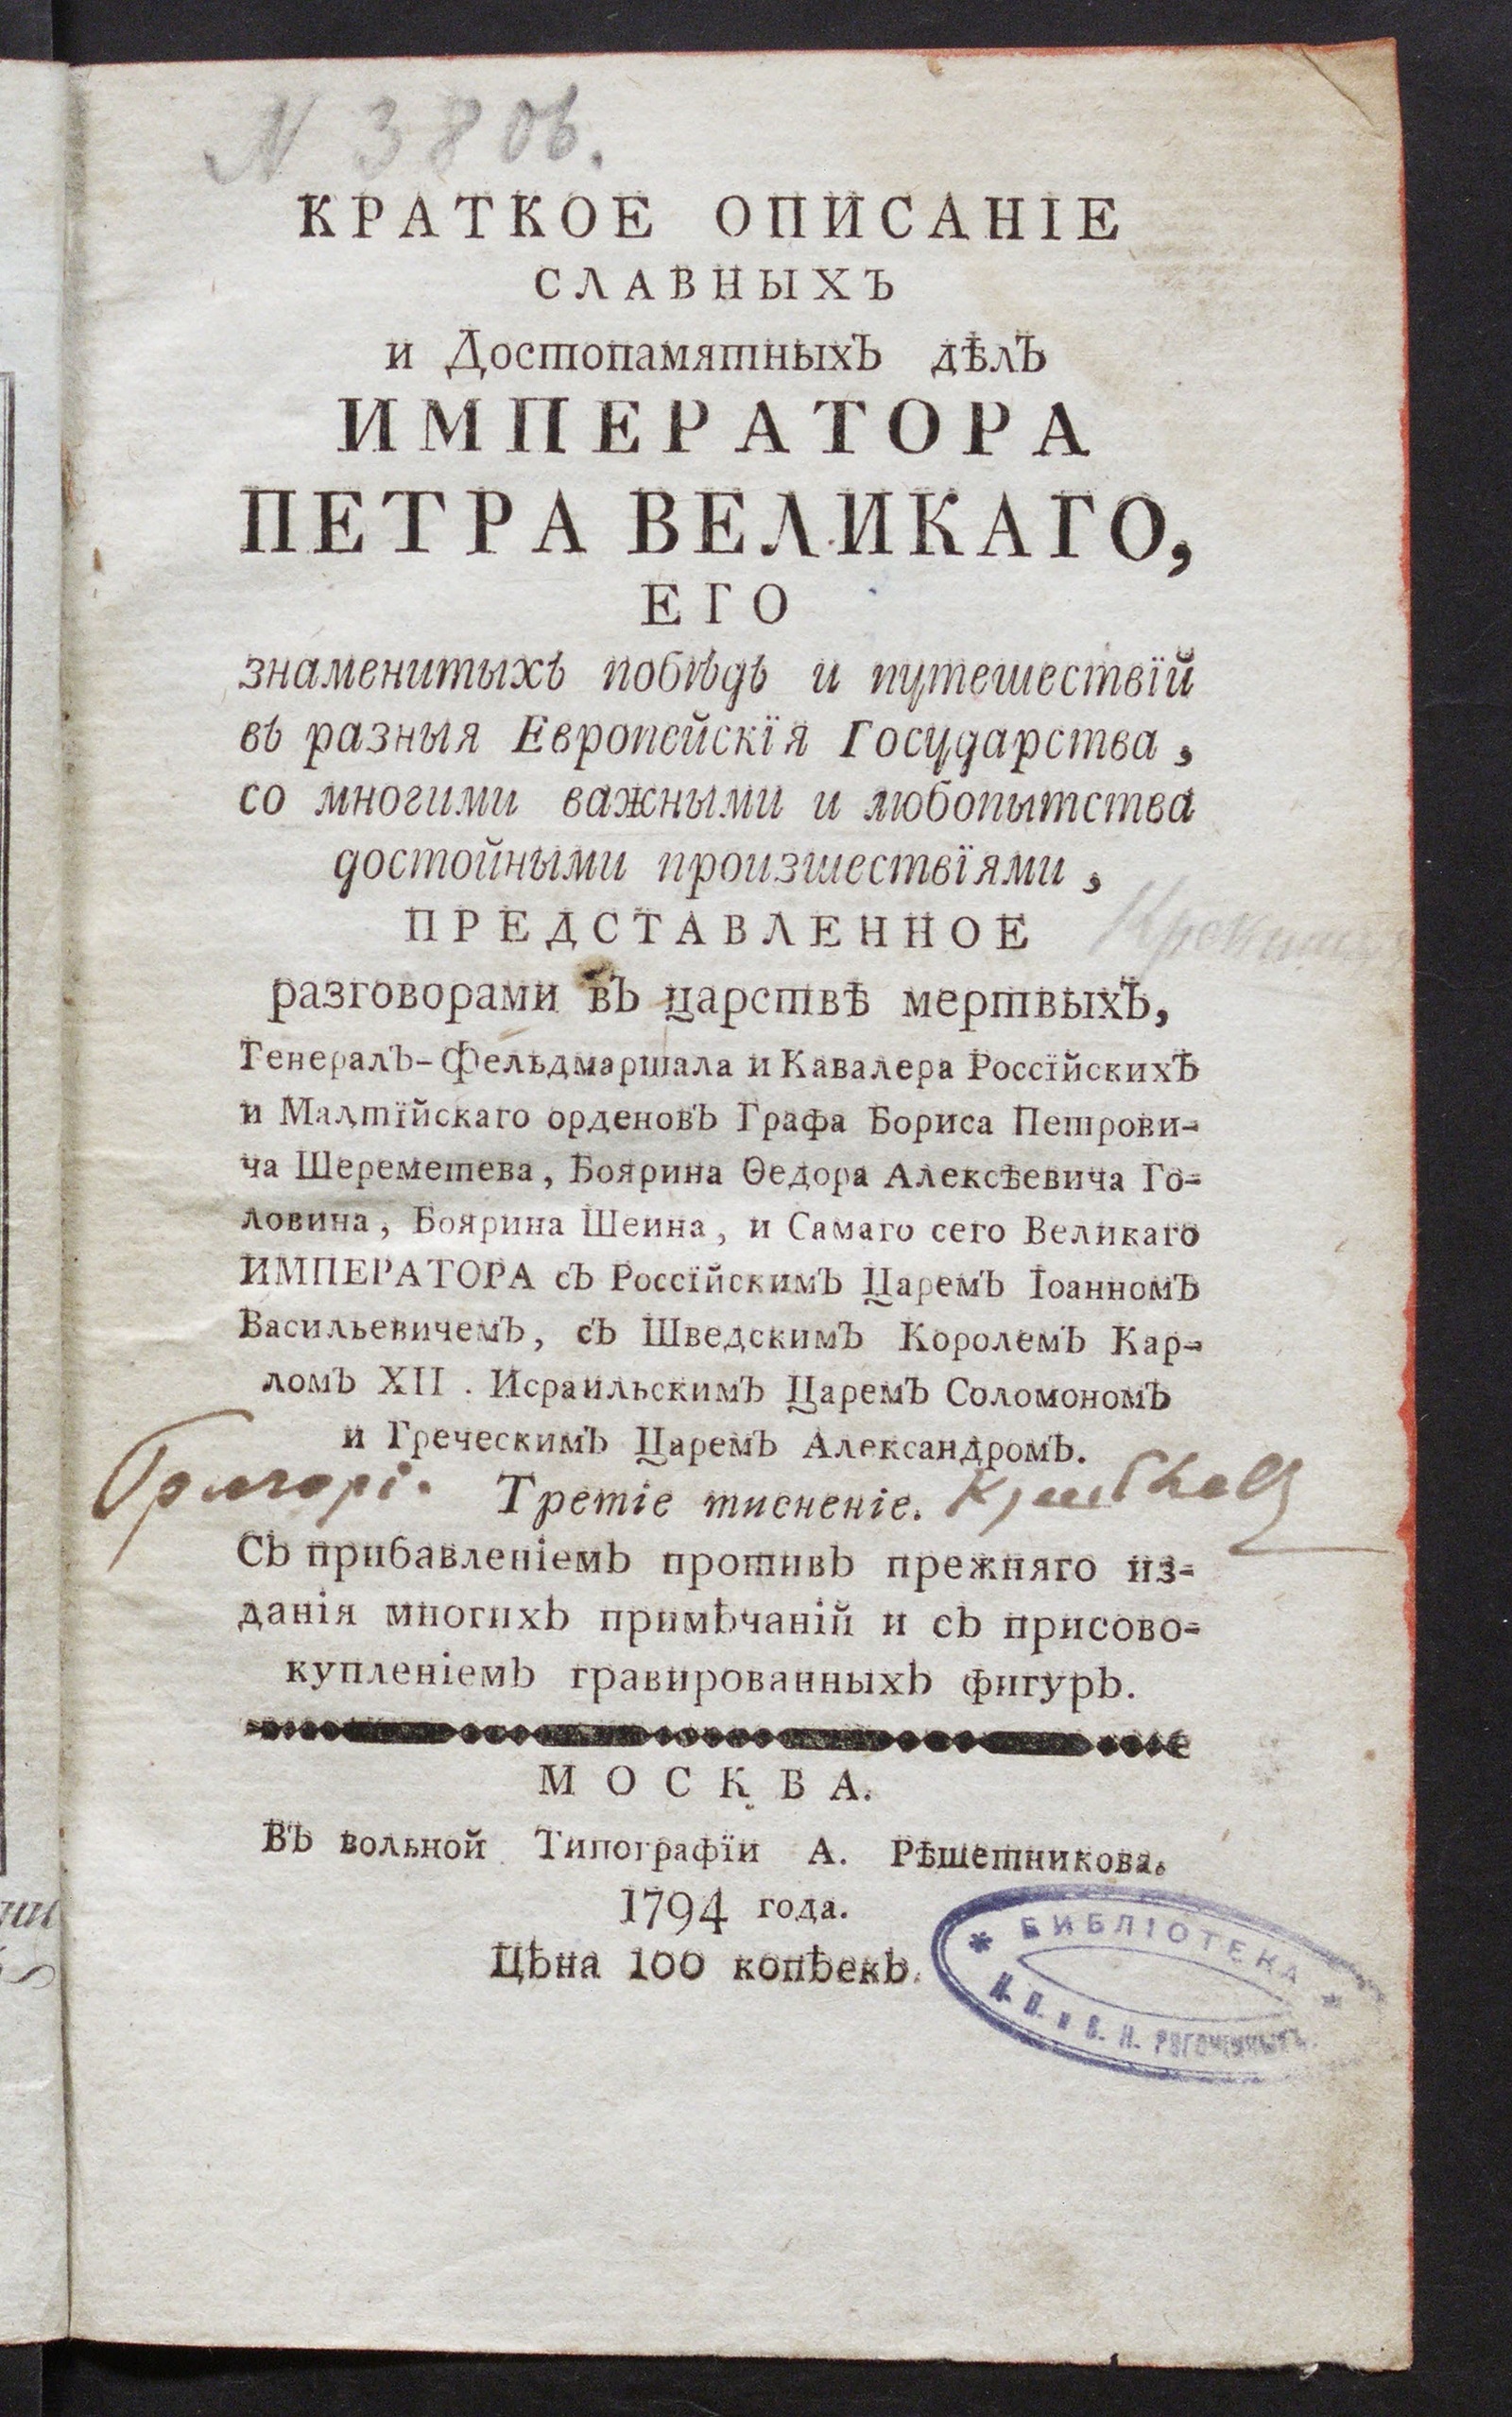 N 3806.
КРАТКОЕ ОПИСАНІЕ
СЛАВНЫХЪ
и ДостопамятныхЪ дѣлЪ
ИМПЕРАТОРА
ПЕТРА ВЕЛИКАГО,
ЕГО
знаменитыхъ побѣдъ и путешествїй
въ разныя Европейскїя Государства,
со многими важными и любопытства
достойными произшествїями,
ПРЕДСТАВЛЕННОЕ
разговорами вЪ царствѣ мертвыхЪ,
ГенералЪ-Фельдмаршала и Кавалера РоссїйскихЪ
и Малтїйскаго орденовЪ Графа Бориса Петрови-
ча Шереметева, Боярина Ѳедора Алексѣевича Го-
ловина, Боярина Шеина, и Самаго сего Великаго
ИМПЕРАТОРА сЪ РоссїйскимЪ ЦаремЪ ІоанномЪ
ВасильевичемЪ, сЪ ШведскимЪ КоролемЪ Кар-
ломЪ XII. ИсраильскимЪ ЦаремЪ СоломономЪ
и ГреческимЪ ЦаремЪ АлександромЪ.
Третіе тисненіе.
Съ прибавленіемъ противъ прежняго из-
данія многихъ примѣчаній и съ присово-
купленіемъ гравированныхъ фигуръ.
МОСКВА.
ВЪ вольной Типографїи А. Рѣшетникова.
1794 года.
Цѣна 100 копѣекъ.
БИБЛІОТЕКА